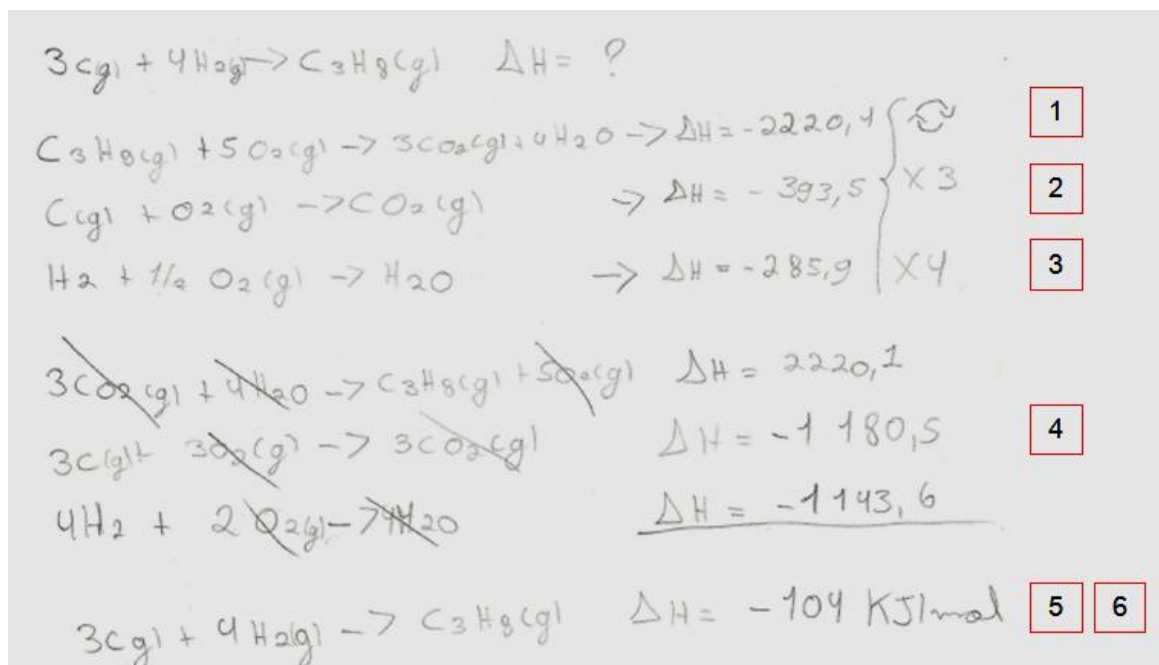 3C(g) + 4H2(g) -> C3H8(g) ΔH = ?
C3H8(g) + 5O2(g) -> 3CO2(g) + 4H2O -> ΔH = -2220,1 1
C(g) + O2(g) -> CO2(g) -> ΔH = - 393,5 X3 2
H2 + 1/2 O2(g) -> H2O -> ΔH = -285,9 X4 3
3CO2(g) + 4H2O -> C3H8(g) + 5O2(g) ΔH = 2220,1
3C(g) + 3O2(g) -> 3CO2(g) ΔH = -1 180,5 4
4H2 + 2O2(g) -> 4H2O ΔH = -1143,6
3Cg) + 4H2(g) -> C3H8(g) ΔH = -104 KJ/mol 5 6